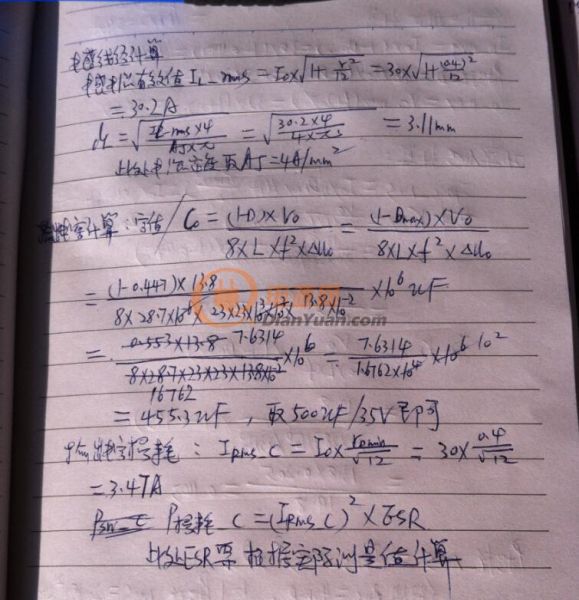 电感线径计算
电感电流有效值 I_L-rms = Io×√(1+r²/12) = 30×√(1+(0.4)²/12)
= 30.2A
d = √(I_L-rms×4/(AJ×π)) = √(30.2×4/(4×π)) = 3.11mm
此处电流密度取AJ=4A/mm²
电容计算：容值 / Co = (1-D)×Vo/(8×L×f²×ΔUo) = (1-Dmax)×Vo/(8×L×f²×ΔUo)
= (1-0.447)×13.8/(8×28.7×10⁻⁶×23×23×10³×10³×13.8×10⁻²) ×10⁶ uF
电源网
DianYuan.com
= 0.553×13.8 7.6314/(8×28.7×23×23×13.8×10⁻²) ×10⁶ = 7.6314/(1.6762×10⁴) ×10⁶ 10²
16762
= 455.3uF，取500uF/35V即可
输出电容损耗：Irms_c = Io×romin/√12 = 30×0.4/√12
= 3.47A
P损耗 C = (Irms C)²×ESR
此处ESR要根据实际测量值计算